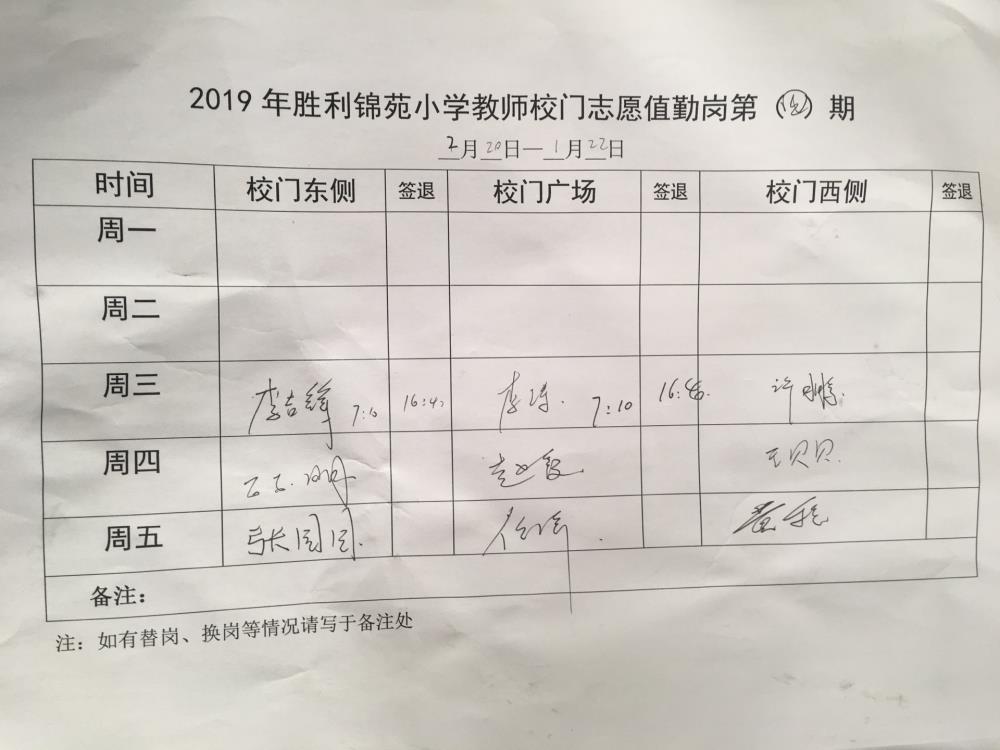 2019 年胜利锦苑小学教师校门志愿值勤岗第（ ）期
2月20日—1月22日
时间 校门东侧 签退 校门广场 签退 校门西侧 签退
周一
周二
周三 李吉锋 7:10 16:4 李 7:10 16:4 许鹏
周四 王王 赵 王贝贝
周五 张园园
备注：
注：如有替岗、换岗等情况请写于备注处